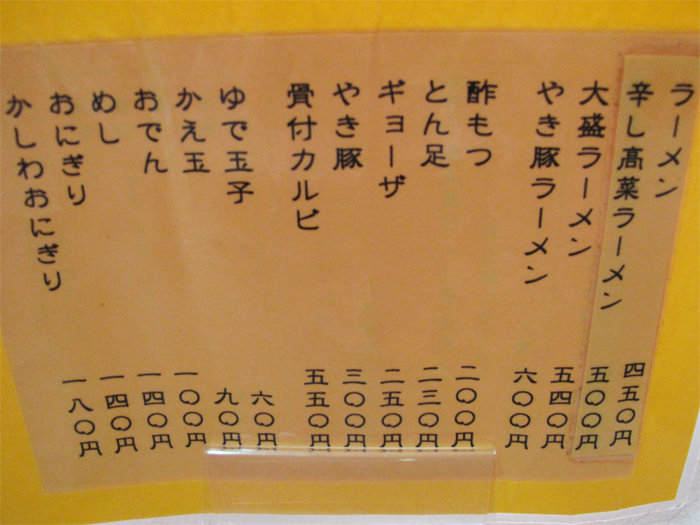 ラーメン 四五〇円
辛し高菜ラーメン 五〇〇円
大盛ラーメン 五四〇円
やき豚ラーメン 六〇〇円
酢もつ 二〇〇円
とん足 二三〇円
ギョーザ 二五〇円
やき豚 三〇〇円
骨付カルビ 五五〇円
ゆで玉子 六〇円
かえ玉 九〇円
おでん 一〇〇円
めし 一四〇円
おにぎり 一四〇円
かしわおにぎり 一八〇円